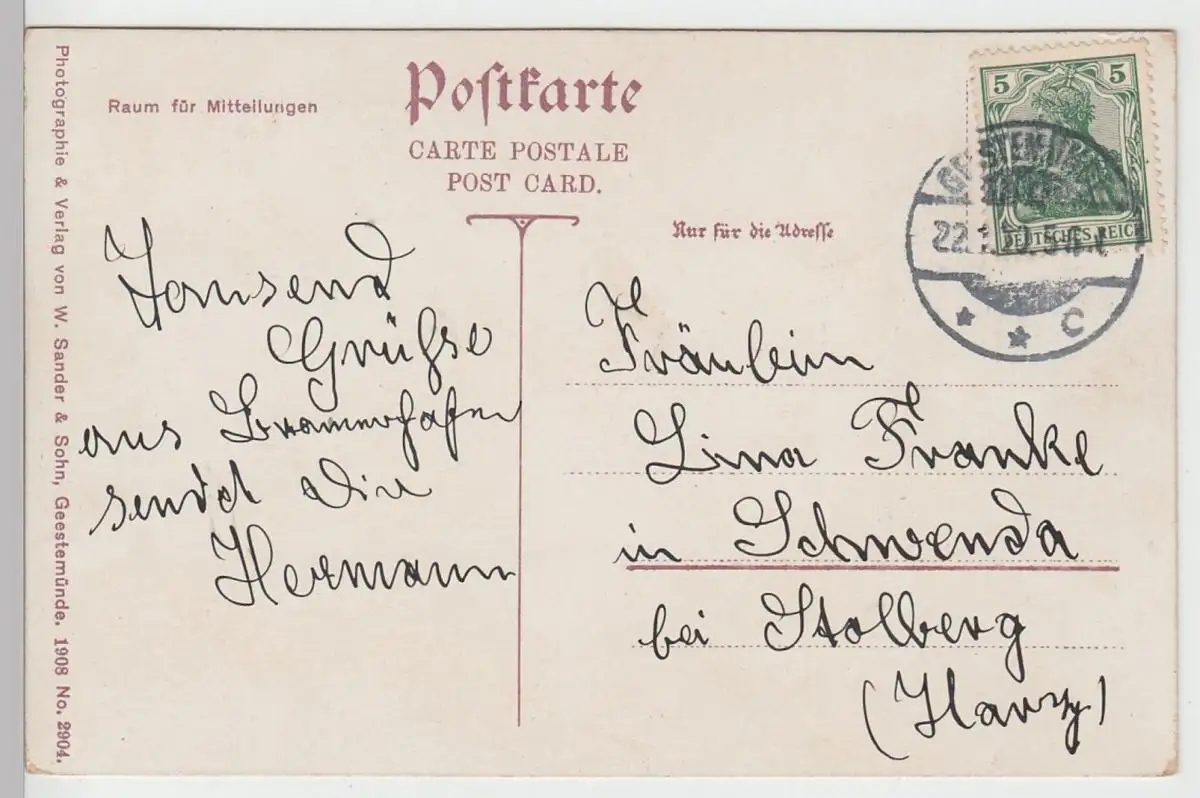 Photographie & Verlag von W. Sander & Sohn, Geestemünde. 1908 No. 2904.
Raum für Mitteilungen
Postkarte
CARTE POSTALE
POST CARD.
Nur für die Adresse
5 5
DEUTSCHES REICH
22.1
C
Tausend
Grühse
aus Bremerhafen
sendet Dir
Hermann
Fräulein
Lina Franke
in Schwenda
bei Stolberg
(Harz)